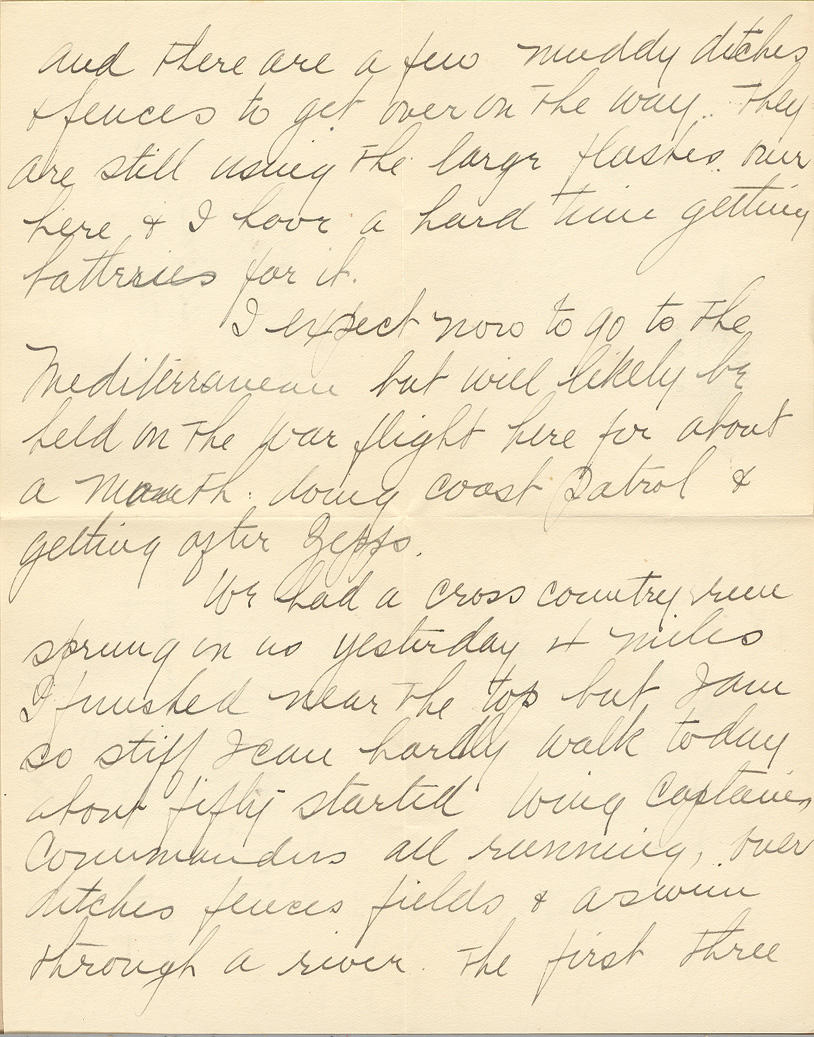 and there are a few muddy ditches
& fences to get over on the way. They
are still using the large flashes over
here & I have a hard time getting
batteries for it.
I expect now to go to the
Mediterranean but will likely be
held on the war flight here for about
a month. doing coast patrol &
getting after Zepps.
We had a cross country run
sprung on us yesterday 4 miles
I finished near the top but I am
so stiff I can hardly walk today
about fifty started Wing Captains,
Commanders all running, over
ditches fences fields & a swim
through a river. The first three